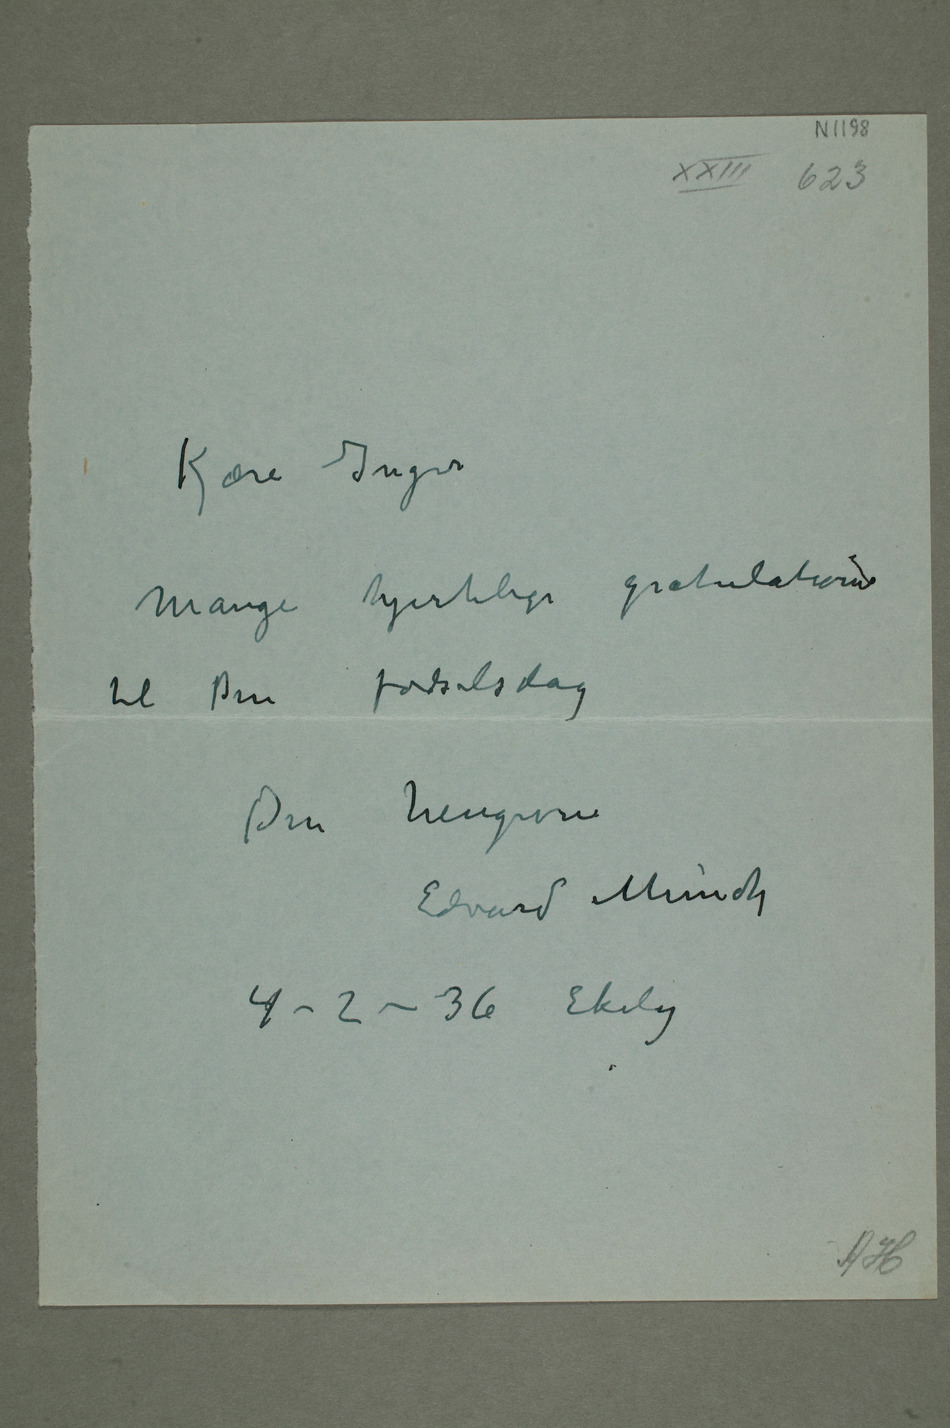 N1198
XXIII 623
Kjære Inger
Mange hjertelige gratulationer
til Din fødselsdag
Din hengivne
Edvard Munch
4-2-36 Ekely
AH